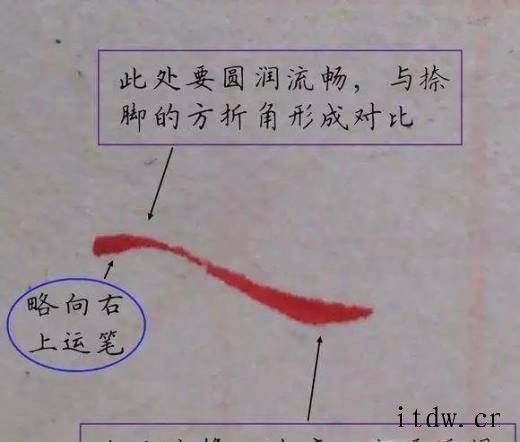 此处要圆润流畅，与捺
脚的方折角形成对比
略向右
上运笔
itdw.cr